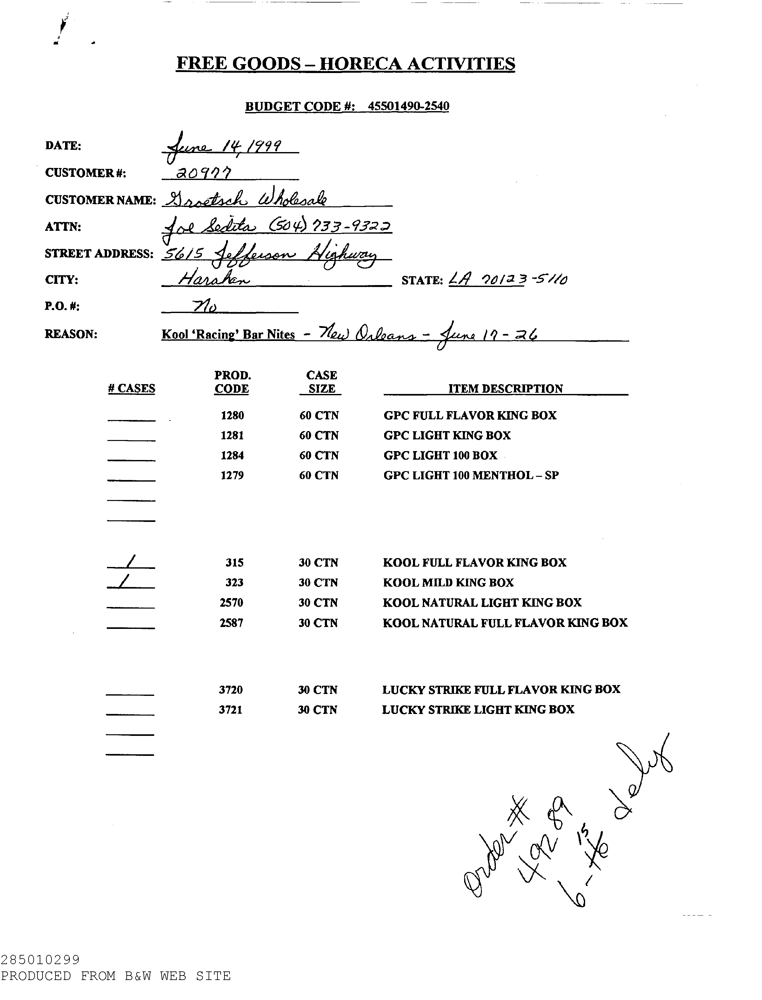 FREE GOODS – HORECA ACTIVITIES
BUDGET CODE #: 45501490-2540
DATE: June 14, 1999
CUSTOMER #: 20977
CUSTOMER NAME: Groetsch Wholesale
ATTN: Joe Sedita (504) 733-9322
STREET ADDRESS: 5615 Jefferson Highway
CITY: Harahan STATE: LA 70123-5110
P.O. #: No
REASON: Kool 'Racing' Bar Nites - New Orleans - June 17-26
# CASES PROD. CODE CASE SIZE ITEM DESCRIPTION
1280 60 CTN GPC FULL FLAVOR KING BOX
1281 60 CTN GPC LIGHT KING BOX
1284 60 CTN GPC LIGHT 100 BOX
1279 60 CTN GPC LIGHT 100 MENTHOL – SP
1 315 30 CTN KOOL FULL FLAVOR KING BOX
1 323 30 CTN KOOL MILD KING BOX
2570 30 CTN KOOL NATURAL LIGHT KING BOX
2587 30 CTN KOOL NATURAL FULL FLAVOR KING BOX
3720 30 CTN LUCKY STRIKE FULL FLAVOR KING BOX
3721 30 CTN LUCKY STRIKE LIGHT KING BOX
order #
49289
6-16 15 dely
285010299
PRODUCED FROM B&W WEB SITE